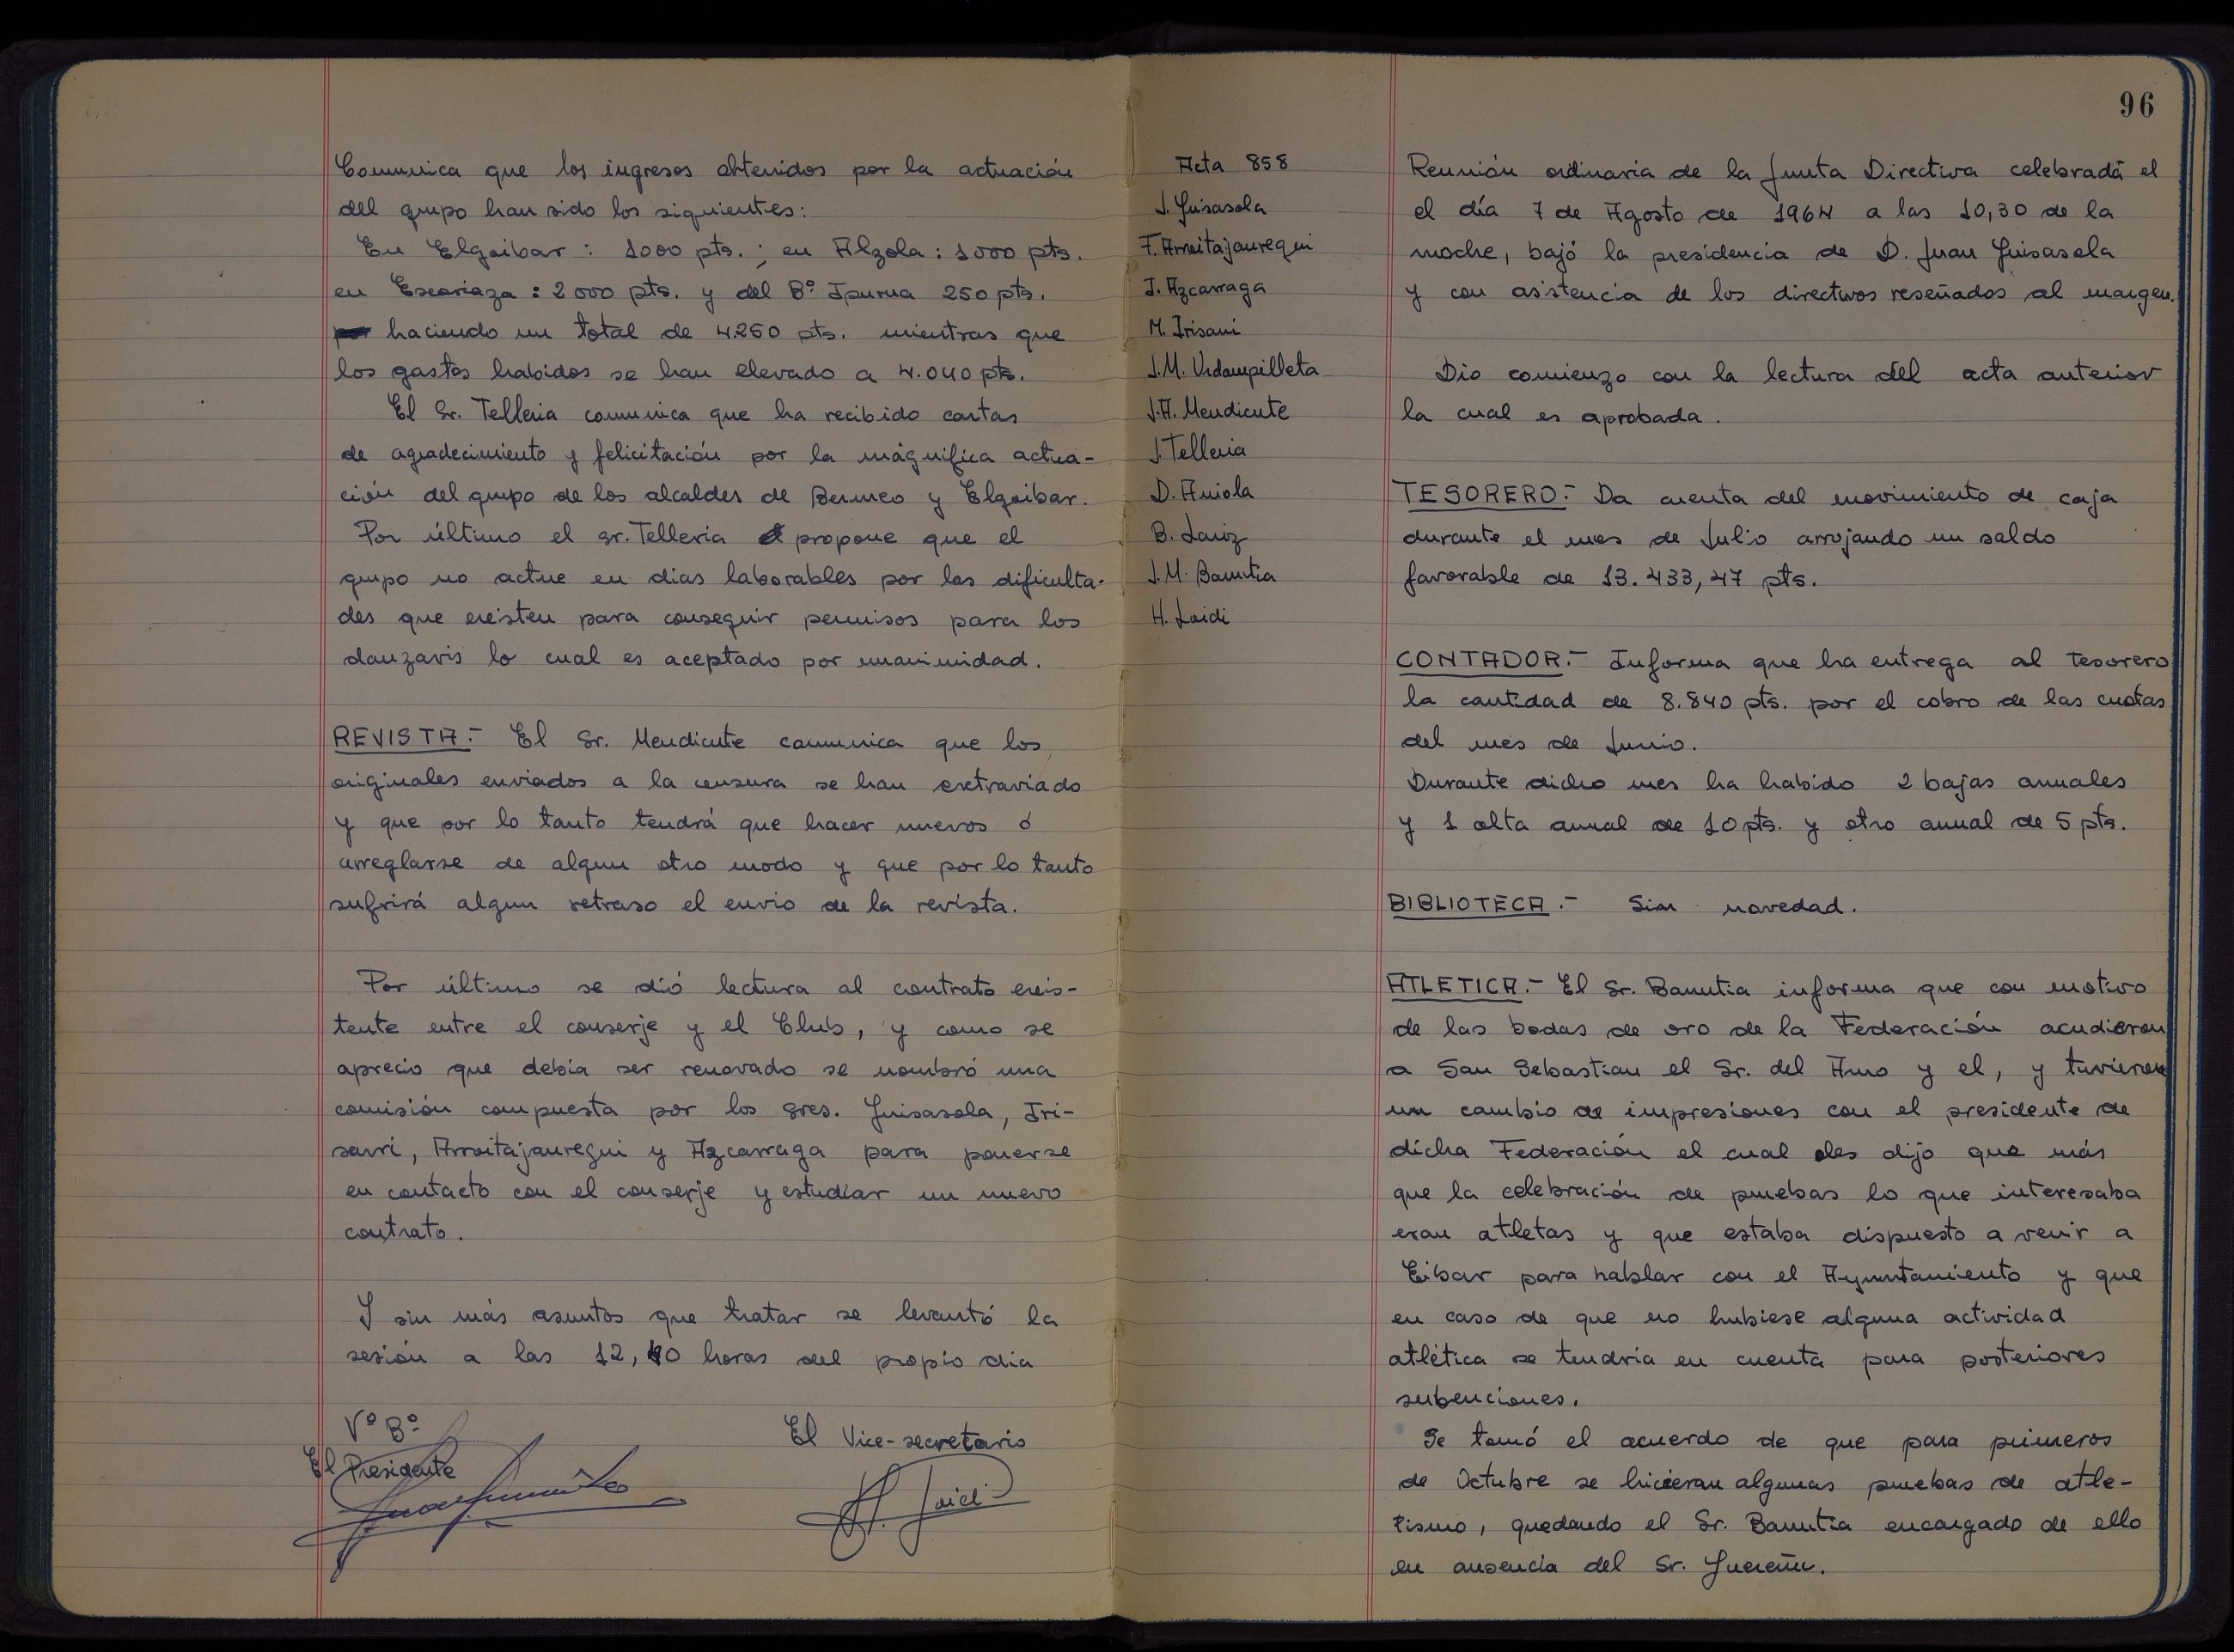 Comunica que los ingresos obtenidos por la actuación
del grupo han sido los siguientes:
En Elgoibar : 1000 pts. ; en Alzola : 1000 pts.
en Escoriaza : 2000 pts. y del Bº Ipurua 250 pts.
haciendo un total de 4.250 pts. mientras que
los gastos habidos se han elevado a 4.040 pts.
El Sr. Telleria comunica que ha recibido cartas
de agradecimiento y felicitación por la mágnifica actua-
ción del grupo de los alcaldes de Bermeo y Elgoibar.
Por último el sr. Telleria propone que el
grupo no actue en dias laborables por las dificulta-
des que existen para conseguir permisos para los
danzaris lo cual es aceptado por unanimidad.
REVISTA.- El Sr. Mendicute comunica que los
originales enviados a la censura se han extraviado
y que por lo tanto tendrá que hacer nuevos ó
arreglarse de algun otro modo y que por lo tanto
sufrirá algun retraso el envio de la revista.
Por último se dió lectura al contrato exis-
tente entre el conserje y el Club, y como se
aprecio que debia ser renovado se nombró una
comisión compuesta por los sres. Guisasola, Iri-
sarri, Arroitajauregui y Azcarraga para ponerse
en contacto con el conserje y estudiar un nuevo
contrato.
Y sin más asuntos que tratar se levantó la
sesión a las 12,10 horas del propio dia
Vº Bº
El Presidente
El Vice-secretario
H. Loidi
96
Acta 858
J. Guisasola
F. Arroitajauregui
J. Azcarraga
M. Irisarri
J.M. Urdampilleta
J.A. Mendicute
J. Telleria
D. Ariola
B. Lariz
J.M. Barrutia
H. Loidi
Reunión ordinaria de la Junta Directiva celebrada el
el día 7 de Agosto de 1964 a las 10,30 de la
noche, bajó la presidencia de D. Juan Guisasola
y con asistencia de los directivos reseñados al margen.
Dio comienzo con la lectura del acta anterior
la cual es aprobada.
TESORERO.- Da cuenta del movimiento de caja
durante el mes de Julio arrojando un saldo
favorable de 13.433,47 pts.
CONTADOR.- Informa que ha entrega al tesorero
la cantidad de 8.840 pts. por el cobro de las cuotas
del mes de Junio.
Durante dicho mes ha habido 2 bajas anuales
y 1 alta anual de 10 pts. y otro anual de 5 pts.
BIBLIOTECA.- Sin novedad.
ATLETICA.- El Sr. Barrutia informa que con motivo
de las bodas de oro de la Federación acudieron
a San Sebastian el Sr. del Amo y el, y tuvieron
un cambio de impresiones con el presidente de
dicha Federación el cual les dijo que más
que la celebración de pruebas lo que interesaba
eran atletas y que estaba dispuesto a venir a
Eibar para hablar con el Ayuntamiento y que
en caso de que no hubiese alguna actividad
atlética se tendría en cuenta para posteriores
subenciones.
Se tomó el acuerdo de que para primeros
de Octubre se hicieran algunas pruebas de atle-
tismo, quedando el Sr. Barrutia encargado de ello
en ausencia del Sr. Guereñu.